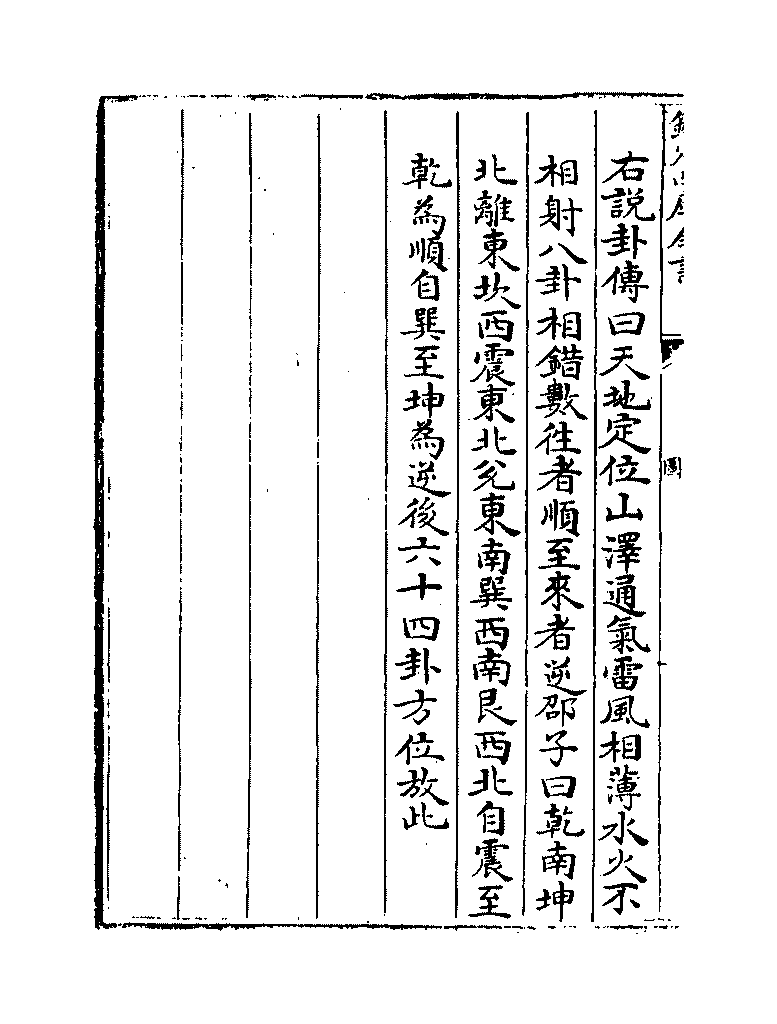 右説卦傳曰天地定位山澤通氣雷風相薄水火不
相射八卦相錯數徃者順至來者逆邵子曰乾南坤
北離東坎西震東北兊東南巽西南艮西北自震至
乾為順自巽至坤為逆後六十四卦方位放此
圖